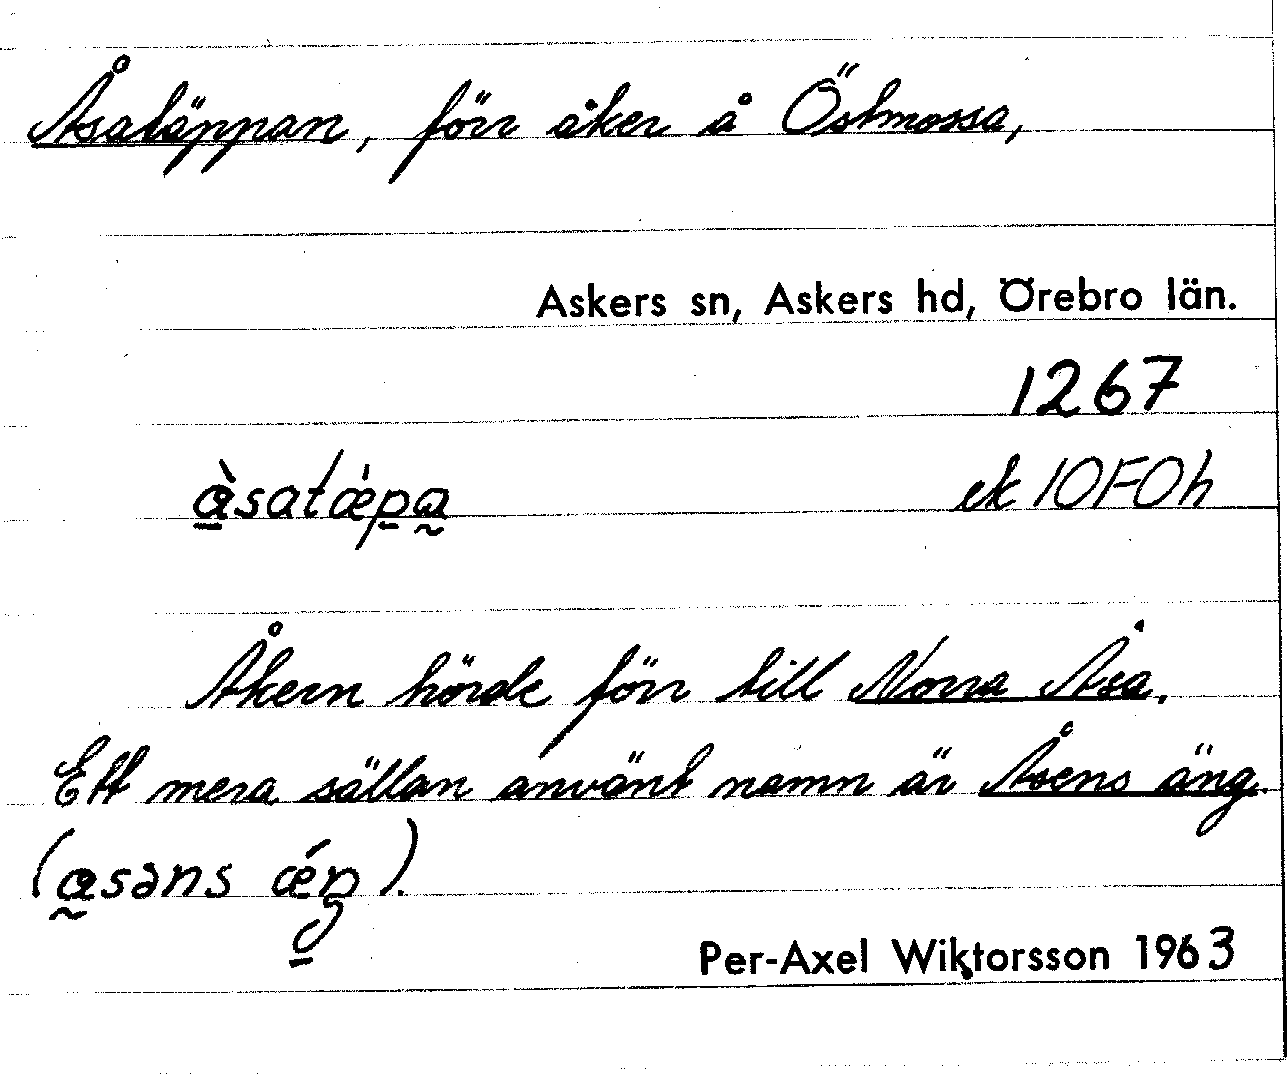 Åsatäppan, förr åker å Östmossa,
Askers sn, Askers hd, Örebro län.
1267
ek 10F0h
Åkern hörde förr till Norra Åsa.
Ett mera sällan använt namn är Åsens äng
Per-Axel Wiktorsson 1963